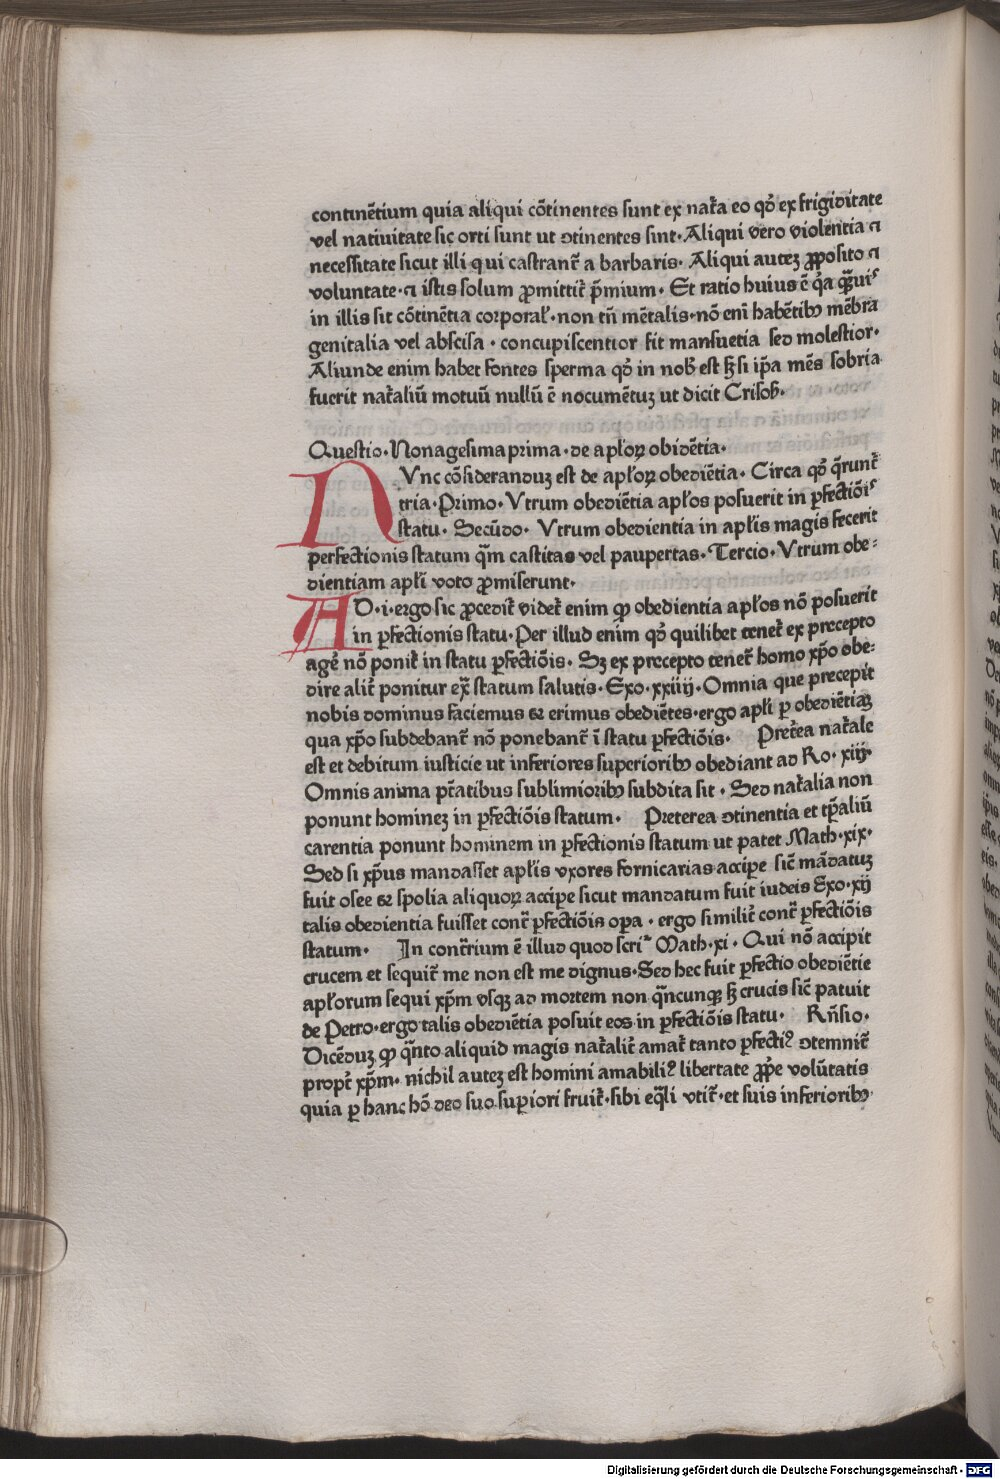 continētium quia aliqui cōtinentes sunt ex natr̄a eo qđ ex frigiditate
vel natiuitate sic orti sunt ut ꝯtinentes sint· Aliqui vero violentia ⁊
necessitate sicut illi qui castrant̄ a barbaris· Aliqui autez ꝓposito ⁊
voluntate·⁊ istis solum ꝓmittit̄ p̄mium· Et ratio huius ē qꝛ̄a qq̄̄uiˢ
in illis sit cōtinētia corporał·non tn̄ mētalis·nō eni habētibꝫ mēbra
genitalia vel abscisa · concupiscentior fit mansuetia sed molestior·
Aliunde enim habet fontes sperma qđ in nob̄ est ꝶ si ip̄a mēs sobria
fuerit natr̄aliū motuū nullū ē nocumētuz ut dicit Crisoƀ·
Questio·Nonagesima prima·de apłoꝝ obidētia·
NVnc cōsideranduz est de apłoꝝ obediētia· Circa qđ q̄runt̄
tria·Primo· Vtrum obediētia apłos posuerit in ꝑfectiōiˢ
statu· Secūdo· Vtrum obedientia in apłis magis fecerit
perfectionis statum q̄m castitas vel paupertas·Tercio·Vtrum obe⸗
dientiam apłi voto ꝓmiserunt·
AD·i·ergo sic ꝓcedit̄ videt̄ enim ꝙ obedientia apłos nō posuerit
in ꝑfectionis statu·Per illud enim qđ quilibet tenet̄ ex precepto
age̾ nō ponit̄ in statu ꝑfectiōis· Sꝫ ex precepto tenet̄ homo xp̄o obe⸗
dire alit̄ ponitur ex̄ statum salutis·Exo·xxiiij·Omnia que precepit
nobis dominus faciemus ⁊ erimus obediētes·ergo apłi ꝑ obediētiaꝫ
qua xp̄o subdebant̄ nō ponebant̄ ī statu ꝑfectiōis· Pret̄ea natr̄ale
est et debitum iusticie ut inferiores superioribꝫ obediant ad Ro· xiij·
Omnis anima pt̄atibus sublimioribꝫ subdita sit · Sed natr̄alia non
ponunt hominez in ꝑfectiōis statum· Preterea ꝯtinentia et tp̄aliū
carentia ponunt hominem in ꝑfectionis statum ut patet Math·xix·
Sed si xp̄us mandasset apłis vxores fornicarias accipe sic̄ mādatuz
fuit osee ⁊ spolia aliquoꝝ accipe sicut mandatum fuit iudeis Exo·xij
talis obedientia fuisset contr̄ ꝑfectiōis oꝑa · ergo similit̄ contr̄ ꝑfectiōis
statum· In contr̄rium ē illud quod scriᵐ Math·xi· Qui nō accipit
crucem et sequit̄ me non est me dignus·Sed hec fuit ꝑfectio obediētie
apłorum sequi xp̄m vsqꝫ ad mortem non q̄ncunqꝫ ꝶ crucis sic̄ patuit
de Petro·ergo talis obediētia posuit eos in ꝑfectiōis statu· Rn̄sio·
Dicēduz ꝙ q̄nto aliquid magis natr̄alit̄ amat̄ tanto ꝑfectiꝰ ꝯtemnit̄
propt̄ xp̄m· nichil autez est homini amabiliꝰ libertate ꝓp̄e volūtatis
quia ꝑ hanc hō deo suo suꝑiori fruit̄·sibi eq̄li vtit̄·et suis inferioribꝫ
Digitalisierung gefördert durch die Deutsche Forschungsgemeinschaft - DFG